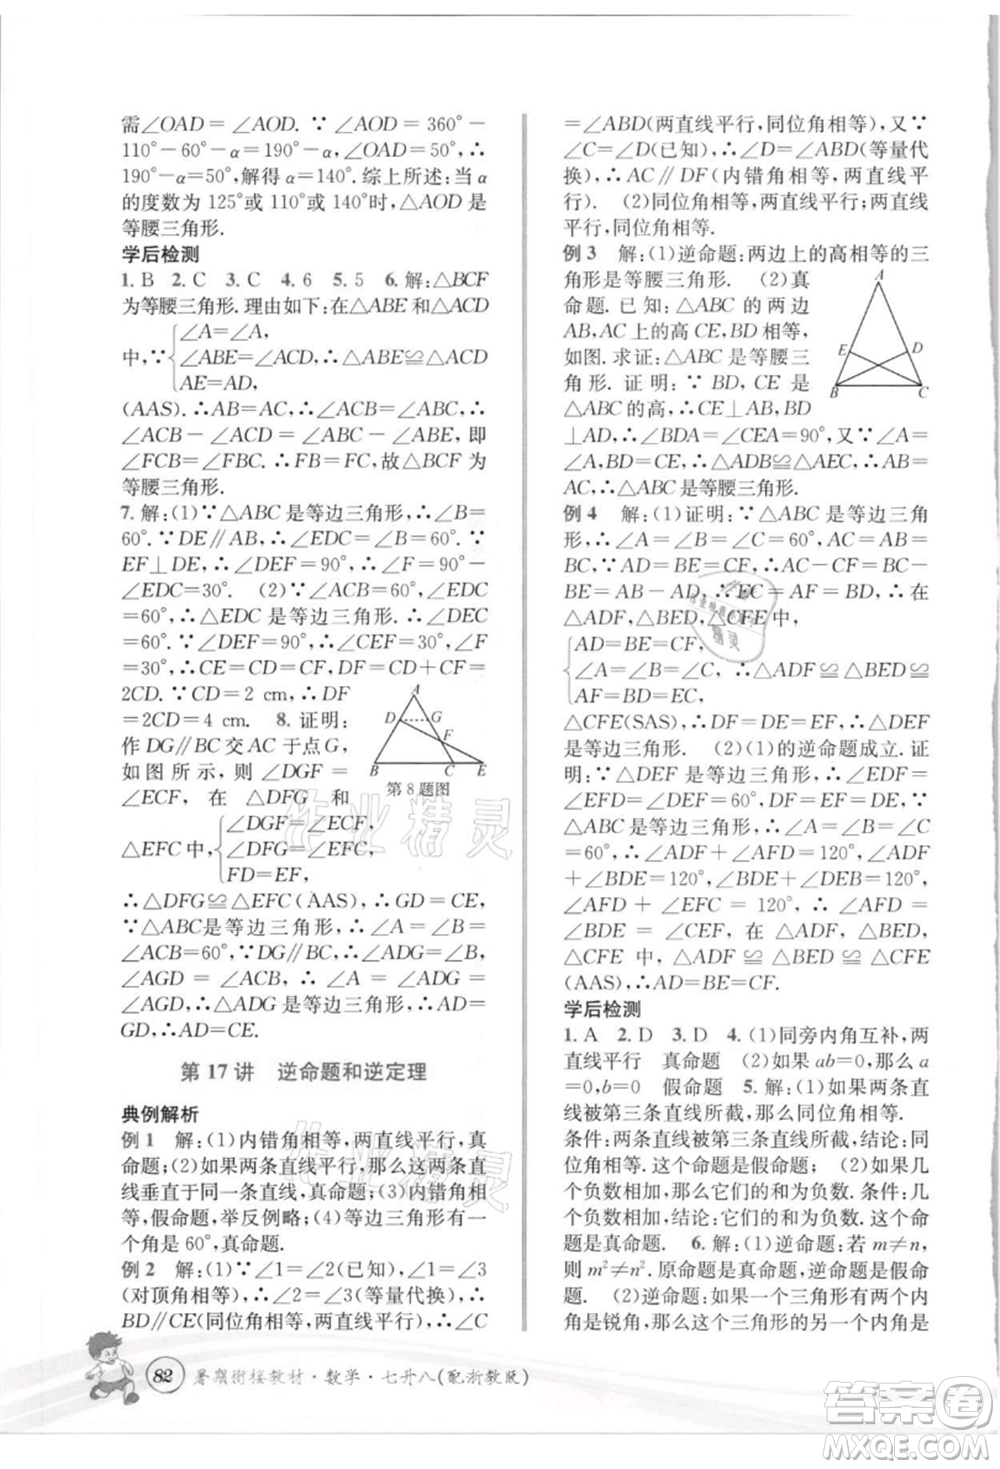 需∠OAD=∠AOD. ∵ ∠AOD=360°-
110°-60°-α=190°-α, ∠OAD=50°, ∴
190°-α=50°, 解得 α=140°. 综上所述: 当 α
的度数为 125°或 110°或 140°时, △AOD 是
等腰三角形.
学后检测
1. B 2. C 3. C 4. 6 5. 5 6. 解: △BCF
为等腰三角形. 理由如下: 在△ABE 和△ACD
中, ∵ { ∠A=∠A,
∠ABE=∠ACD, ∴ △ABE≌△ACD
AE=AD,
(AAS). ∴AB=AC, ∴∠ABC=∠ACB,
∴∠ABC-∠ABE=∠ACB-∠ABE, 即
∠FCB=∠FBC. ∴FB=FC, 故△BCF 为
等腰三角形.
7. 解: (1) ∵ △ABC 是等边三角形, ∴∠B=
60°. ∵DE∥AB, ∴∠EDC=∠B=60°. ∵
EF⊥DE, ∴∠DEF=90°, ∴∠F=90°-
∠EDC=30°. (2) ∵∠ACB=60°, ∠EDC
=60°, ∴△EDC 是等边三角形, ∴∠DEC=
60°. ∵∠DEF=90°, ∴∠CEF=30°=∠F
=30°, ∴CE=CF, ∴DF=CD+CF=
2CD. ∵CD=2 cm, ∴DF
=2CD=4 cm. 8. 证明:
作 DG∥BC 交 AC 于点 G,
如图所示, 则∠DGF=
∠ECF, 在△DFG 和
△EFC 中 { ∠DGF=∠ECF,
∠DFG=∠EFC,
FD=EF,
A
D
G
F
B
C
E
第 8 题图
∴△DFG≌△EFC (AAS), ∴GD=CE.
∵△ABC是等边三角形, ∴∠A=∠B=
∠ACB=60°, ∵DG∥BC, ∴∠ADG=∠B,
∠AGD=∠ACB, ∴ ∠A=∠ADG=
∠AGD, ∴△ADG 是等边三角形, ∴AD=
GD, ∴AD=CE.
第 17 讲 逆命题和逆定理
典例解析
例 1 解: (1)内错角相等, 两直线平行, 真
命题; (2)如果两条直线平行, 那么这两条直
线垂直于同一条直线, 真命题; (3)内错角相
等, 假命题, 举反例略; (4)等边三角形有一
个角是 60°, 真命题.
例 2 解: (1)∵∠1=∠2(已知), ∠1=∠3
(对顶角相等), ∴∠2=∠3(等量代换), ∴
BD∥CE(同位角相等, 两直线平行), ∴∠C
=∠ABD(两直线平行, 同位角相等), 又∵
∠C=∠D(已知), ∴∠D=∠ABD(等量代
换), ∴AC∥DF(内错角相等, 两直线平
行). (2)同位角相等, 两直线平行; 两直线
平行, 同位角相等; 内错角相等, 两直线平行.
例 3 解: (1)逆命题: 两边上的高相等的三
角形是等腰三角形. (2)真
命题. 已知: △ABC 的两边
AB, AC 上的高 CE, BD 相等,
如图. 求证: △ABC 是等腰三
角形. 证明: ∵ BD, CE 是
△ABC 的高, ∴CE⊥AB, BD
⊥AD, ∴∠BDA=∠CEA=90°, 又∵∠A=
∠A, BD=CE, ∴△ABD≌△ACE, ∴AB=
AC. ∴△ABC 是等腰三角形.
A
E
D
B
C
例 4 解: (1)证明: ∵△ABC 是等边三角
形, ∴∠A=∠B=∠C=60°, AB=AC=
BC, ∵AD=BE=CF, ∴AC-CF=AB-
BE=BC-AD, ∴EC=AF=BD. 在
△ADF, △BED, △CFE中,
{ AD=BE=CF,
∠A=∠B=∠C, ∴△ADF≌△BED≌
AF=BD=EC,
△CFE(SAS), ∴DF=DE=EF, ∴△DEF
是等边三角形. (2)(1)的逆命题成立. 证
明: ∵△DEF 是等边三角形, ∴∠EDF=
∠EFD=∠DEF=60°, DE=DF=EF. ∵
△ABC 是等边三角形, ∴∠A=∠B=∠C
=60°, ∴∠ADF+∠AFD=120°, ∠ADF
+∠BDE=120°, ∠BED+∠BDE=120°,
∠AFD+∠EFC=120°, ∴∠AFD=
∠BDE=∠CEF, 在△ADF, △BED,
△CFE中, △ADF≌△BED≌△CFE
(AAS), ∴AD=BE=CF.
学后检测
1. A 2. D 3. D 4. (1)同旁内角互补, 两
直线平行 真命题 (2)如果 ab=0, 那么 a
=0 假命题 5. 解: (1)如果两条直线
被第三条直线所截, 那么同位角相等.
条件: 两条直线被第三条直线所截, 结论: 同位
角相等. 这个命题是假命题. (2)如果几
个负数相加, 那么它们的和为负数. 条件: 几
个负数相加, 结论: 它们的和为负数. 这个命题
是真命题. 6. 解: (1)逆命题: 若 m≠n,
则 m²≠n². 原命题是真命题, 逆命题是假命
题. (2)逆命题: 如果一个三角形有两条边
上的高相等, 那么这个三角形的两个内角是
82 暑期衔接教材·数学·七升八(配浙教版)
作业精灵
作业精灵
答案圈
MXQE.COM